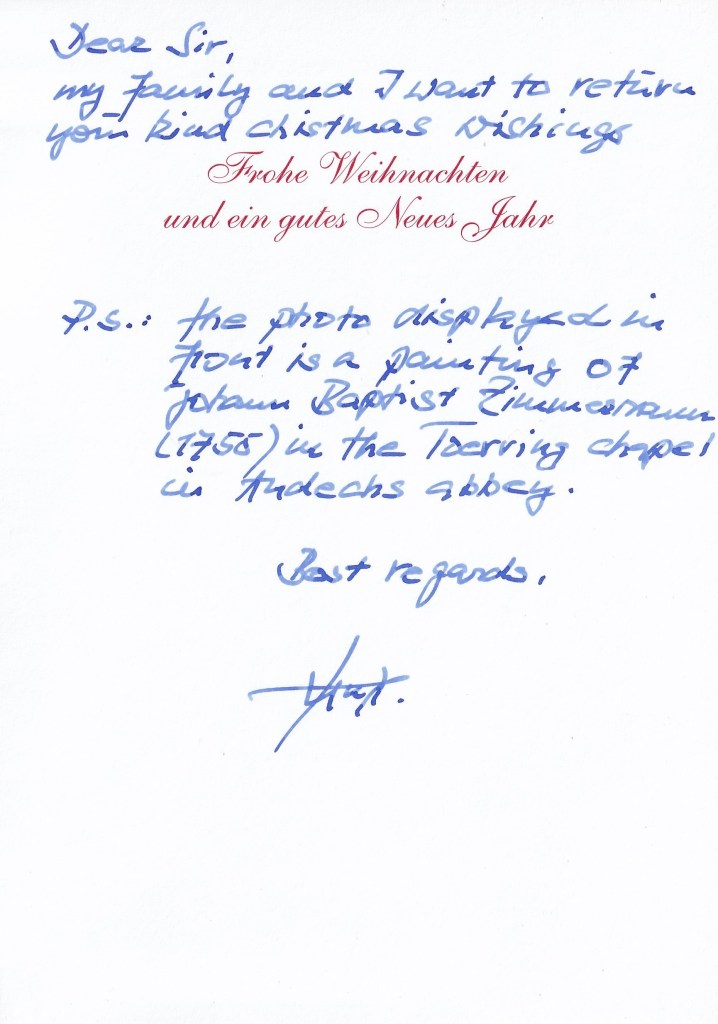 Dear Sir,
my family and I want to return
your kind chistmas wishings
Frohe Weihnachten
und ein gutes Neues Jahr
P.S.: the photo displayed in
front is a painting of
Johann Baptist Zimmermann
(1755) in the Toerring chapel
in Andechs abbey.
Best regards,